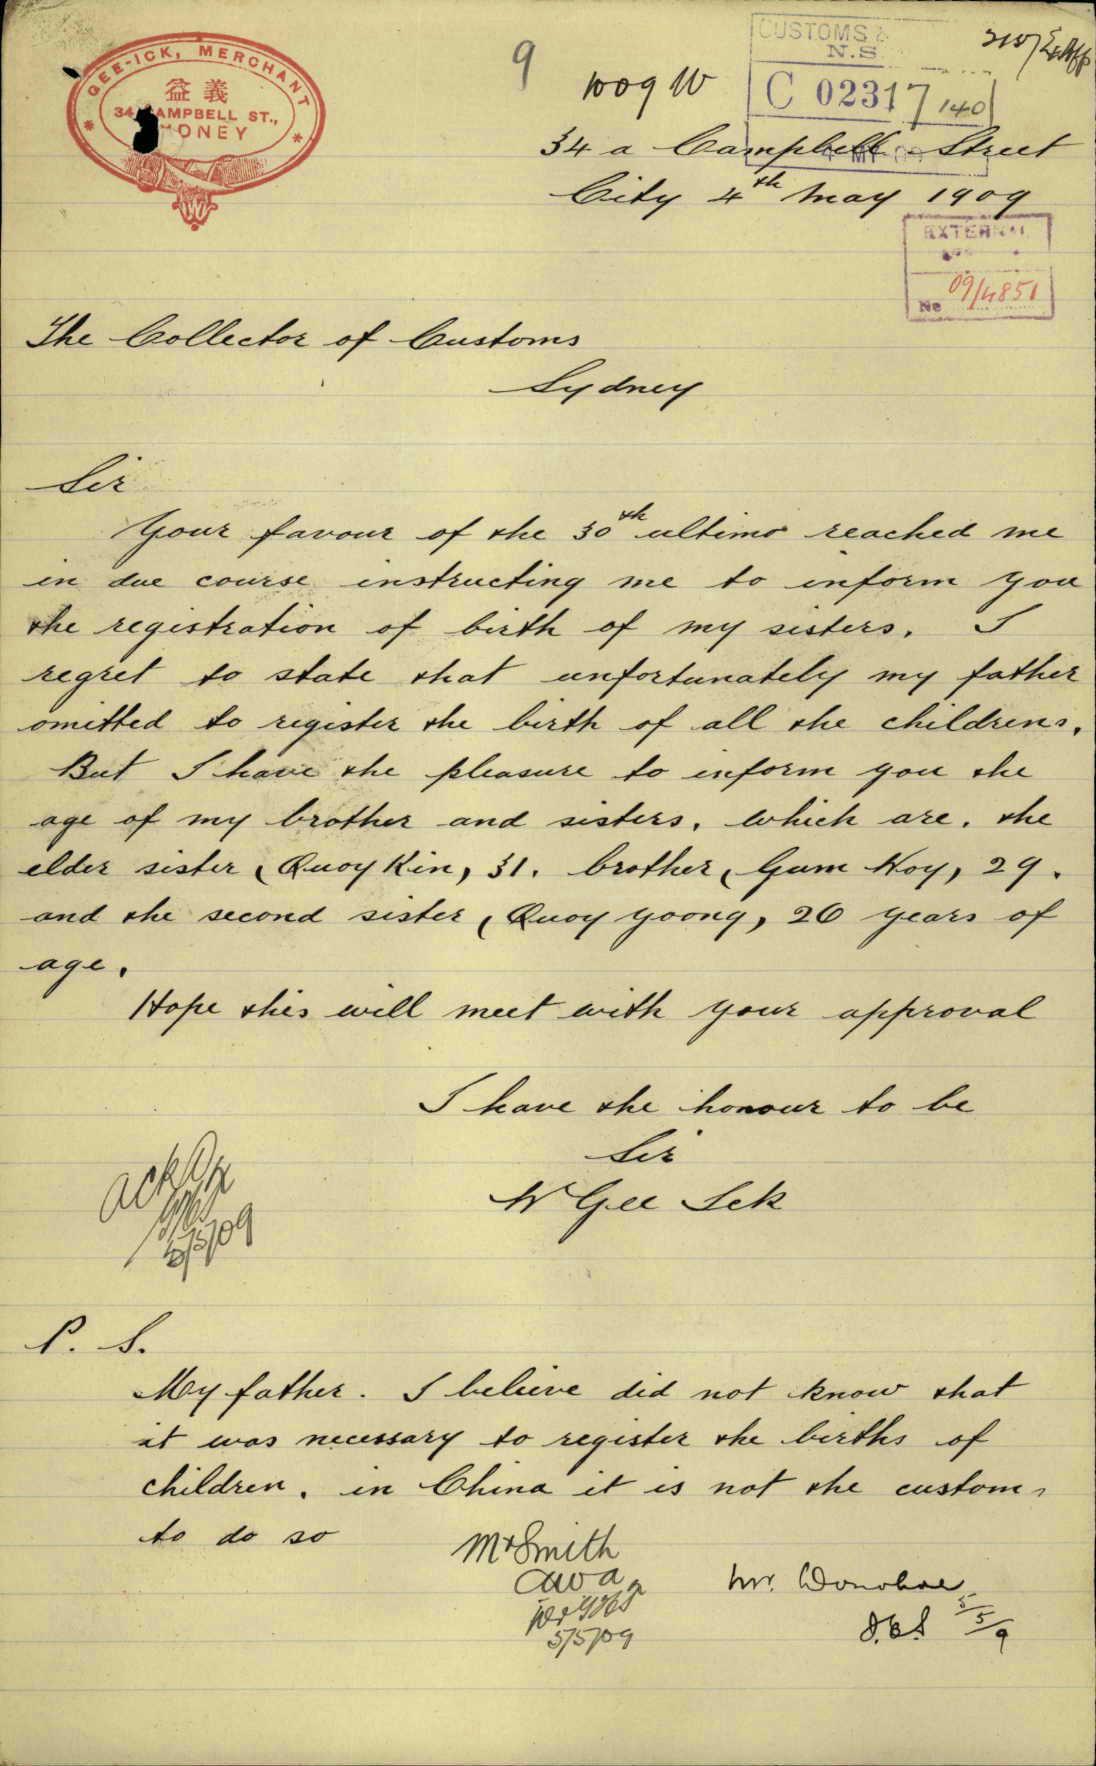 GEE-ICK, MERCHANT
益義
34 CAMPBELL ST.,
SYDNEY
9
1009 W
CUSTOMS &
N.S.
C 02317 /140
34 a Campbell Street
City 4th May 1909
EXTERNAL
No 09/4851
The Collector of Customs
Sydney
Sir
Your favour of the 30th ultimo reached me
in due course instructing me to inform you
the registration of birth of my sisters. I
regret to state that unfortunately my father
omitted to register the birth of all the childrens.
But I have the pleasure to inform you the
age of my brother and sisters, which are. the
elder sister (Quoy Kin, 31. brother (Gum Hoy, 29.
and the second sister (Quoy Yoong, 26 years of
age.
Hope this will meet with your approval
I have the honour to be
Sir
W Gee Ick
5/5/09
P. S.
My father. I believe did not know that
it was necessary to register the births of
children. in China it is not the custom
to do so
Mr Smith
5/5/09
Mr. Donohoe
5/5/9